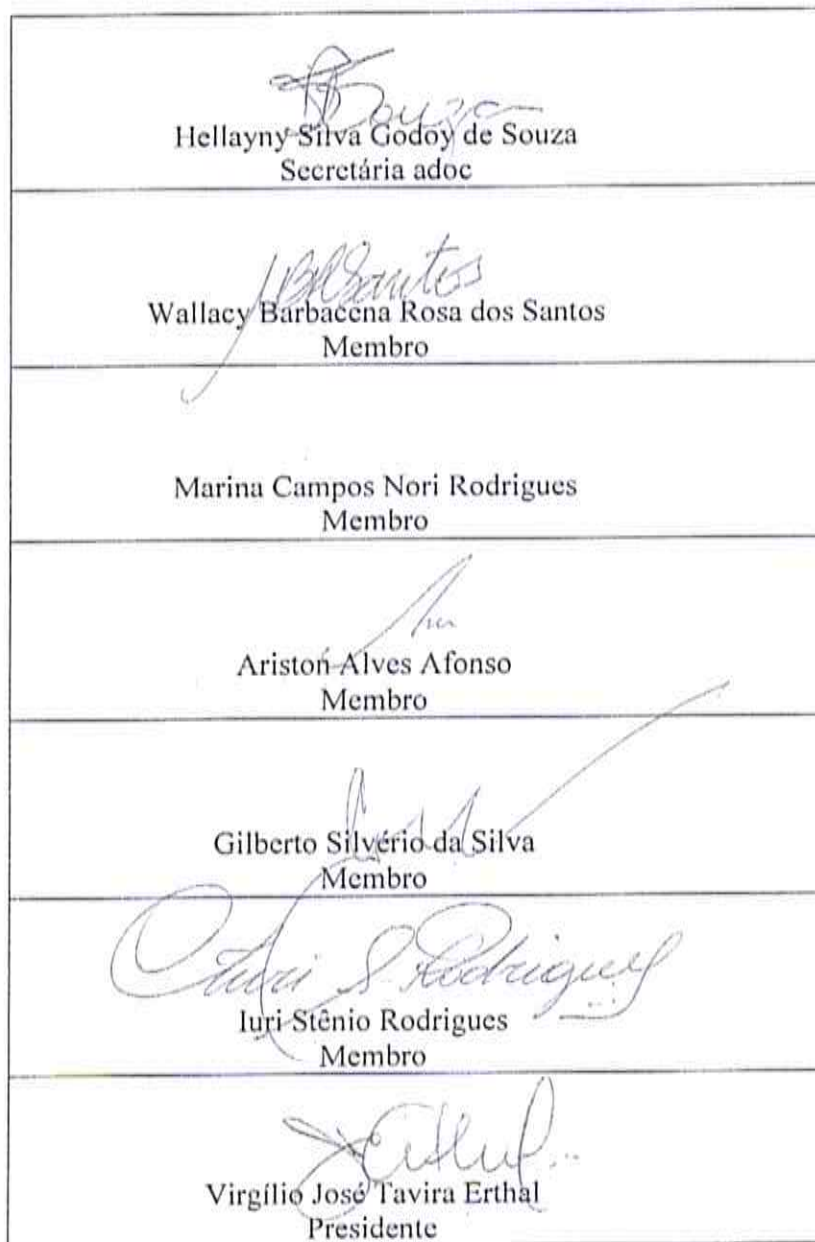 Souza
Hellayny Silva Godoy de Souza
Secretária adoc
Santos
Wallacy Barbacena Rosa dos Santos
Membro
Marina Campos Nori Rodrigues
Membro
Ariston Alves Afonso
Membro
Gilberto Silvério da Silva
Membro
Iuri S. Rodrigues
Iuri Stênio Rodrigues
Membro
Virgílio José Tavira Erthal
Presidente